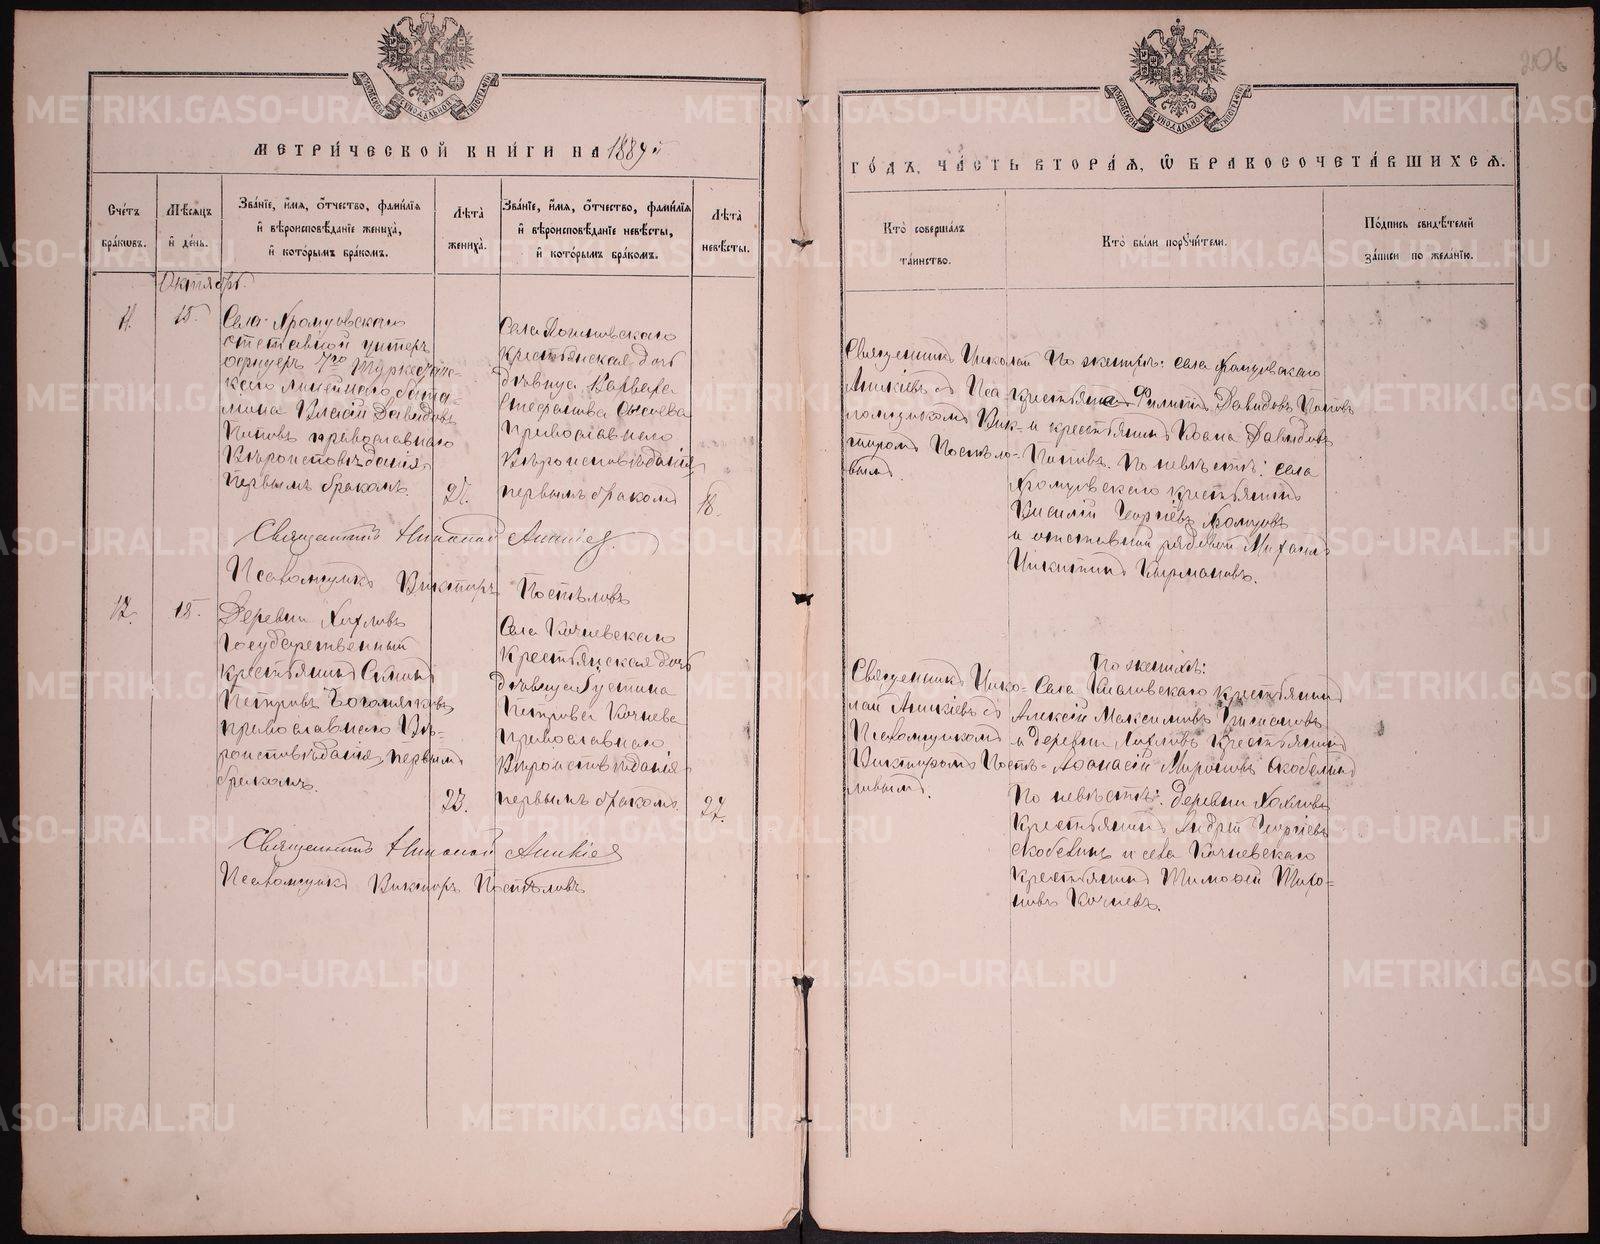 206
МЕТРИЧЕСКОЙ КНИГИ НА 1889 й
ГОДЪ, ЧАСТЬ ВТОРАЯ, Ѡ БРАКОСОЧЕТАВШИХСЯ.
Счетъ браковъ.
Мѣсяцъ и день.
Званіе, имя, отчество, фамилія
и вѣроисповѣданіе жениха,
и которымъ бракомъ.
Лѣта
жениха.
Званіе, имя, отчество, фамилія
и вѣроисповѣданіе невѣсты,
и которымъ бракомъ.
Лѣта
невѣсты.
Кто совершалъ
таинство.
Кто были поручители.
Подпись свидѣтелей
записи по желанію.
Октябрь.
11.
15.
Села Хромцовскаго
отставной унтеръ
офицеръ 7го Туркестан-
скаго линейнаго бата-
ліона Власій Давидовъ
Поповъ православнаго
Вѣроисповѣданія
первымъ бракомъ.
Села
Крестьянская дочь
дѣвица Варвара
Стефанова
Православнаго
Вѣроисповѣданія
первымъ бракомъ
18.
Священникъ Николай Аникіевъ съ Пса-
ломщикомъ Вик-
торомъ Поспѣло-
вымъ.
По женихѣ: села Хромцовскаго
Крестьянинъ Филиппъ Давидовъ Поповъ
и крестьянинъ Иоанъ Давидовъ
Поповъ. По невѣстѣ: села
Хромцовскаго крестьянинъ
Василій Георгіевъ Хромцовъ
и отставной рядовой Михаилъ
Никитинъ
Священникъ Николай Аникіев.
Псаломщикъ Викторъ Поспѣловъ
12.
15.
Деревни
Государственный
крестьянинъ
Петровъ
православнаго Вѣ-
роисповѣданія, первымъ
бракомъ.
23.
Села Кочневскаго
Крестьянская дочь
дѣвица Іустина
Петрова Кочнева
православнаго
Вѣроисповѣданія
первымъ бракомъ.
Священникъ Нико-
лай Аникіевъ съ
Псаломщикомъ
Викторомъ Поспѣ-
ловымъ.
По женихѣ:
Села крестьянинъ
Алексій Максимовъ
и деревни крестьянинъ
Афанасій Мироновъ Скобелинъ
По невѣстѣ: деревни
Крестьянинъ Андрей Георгіевъ
Скобелинъ и села Кочневскаго
крестьянинъ Тимофей Тихо-
новъ Кочневъ.
Священникъ Николай Аникіев
Псаломщикъ Викторъ Поспѣловъ
METRIKI.GASO-URAL.RU